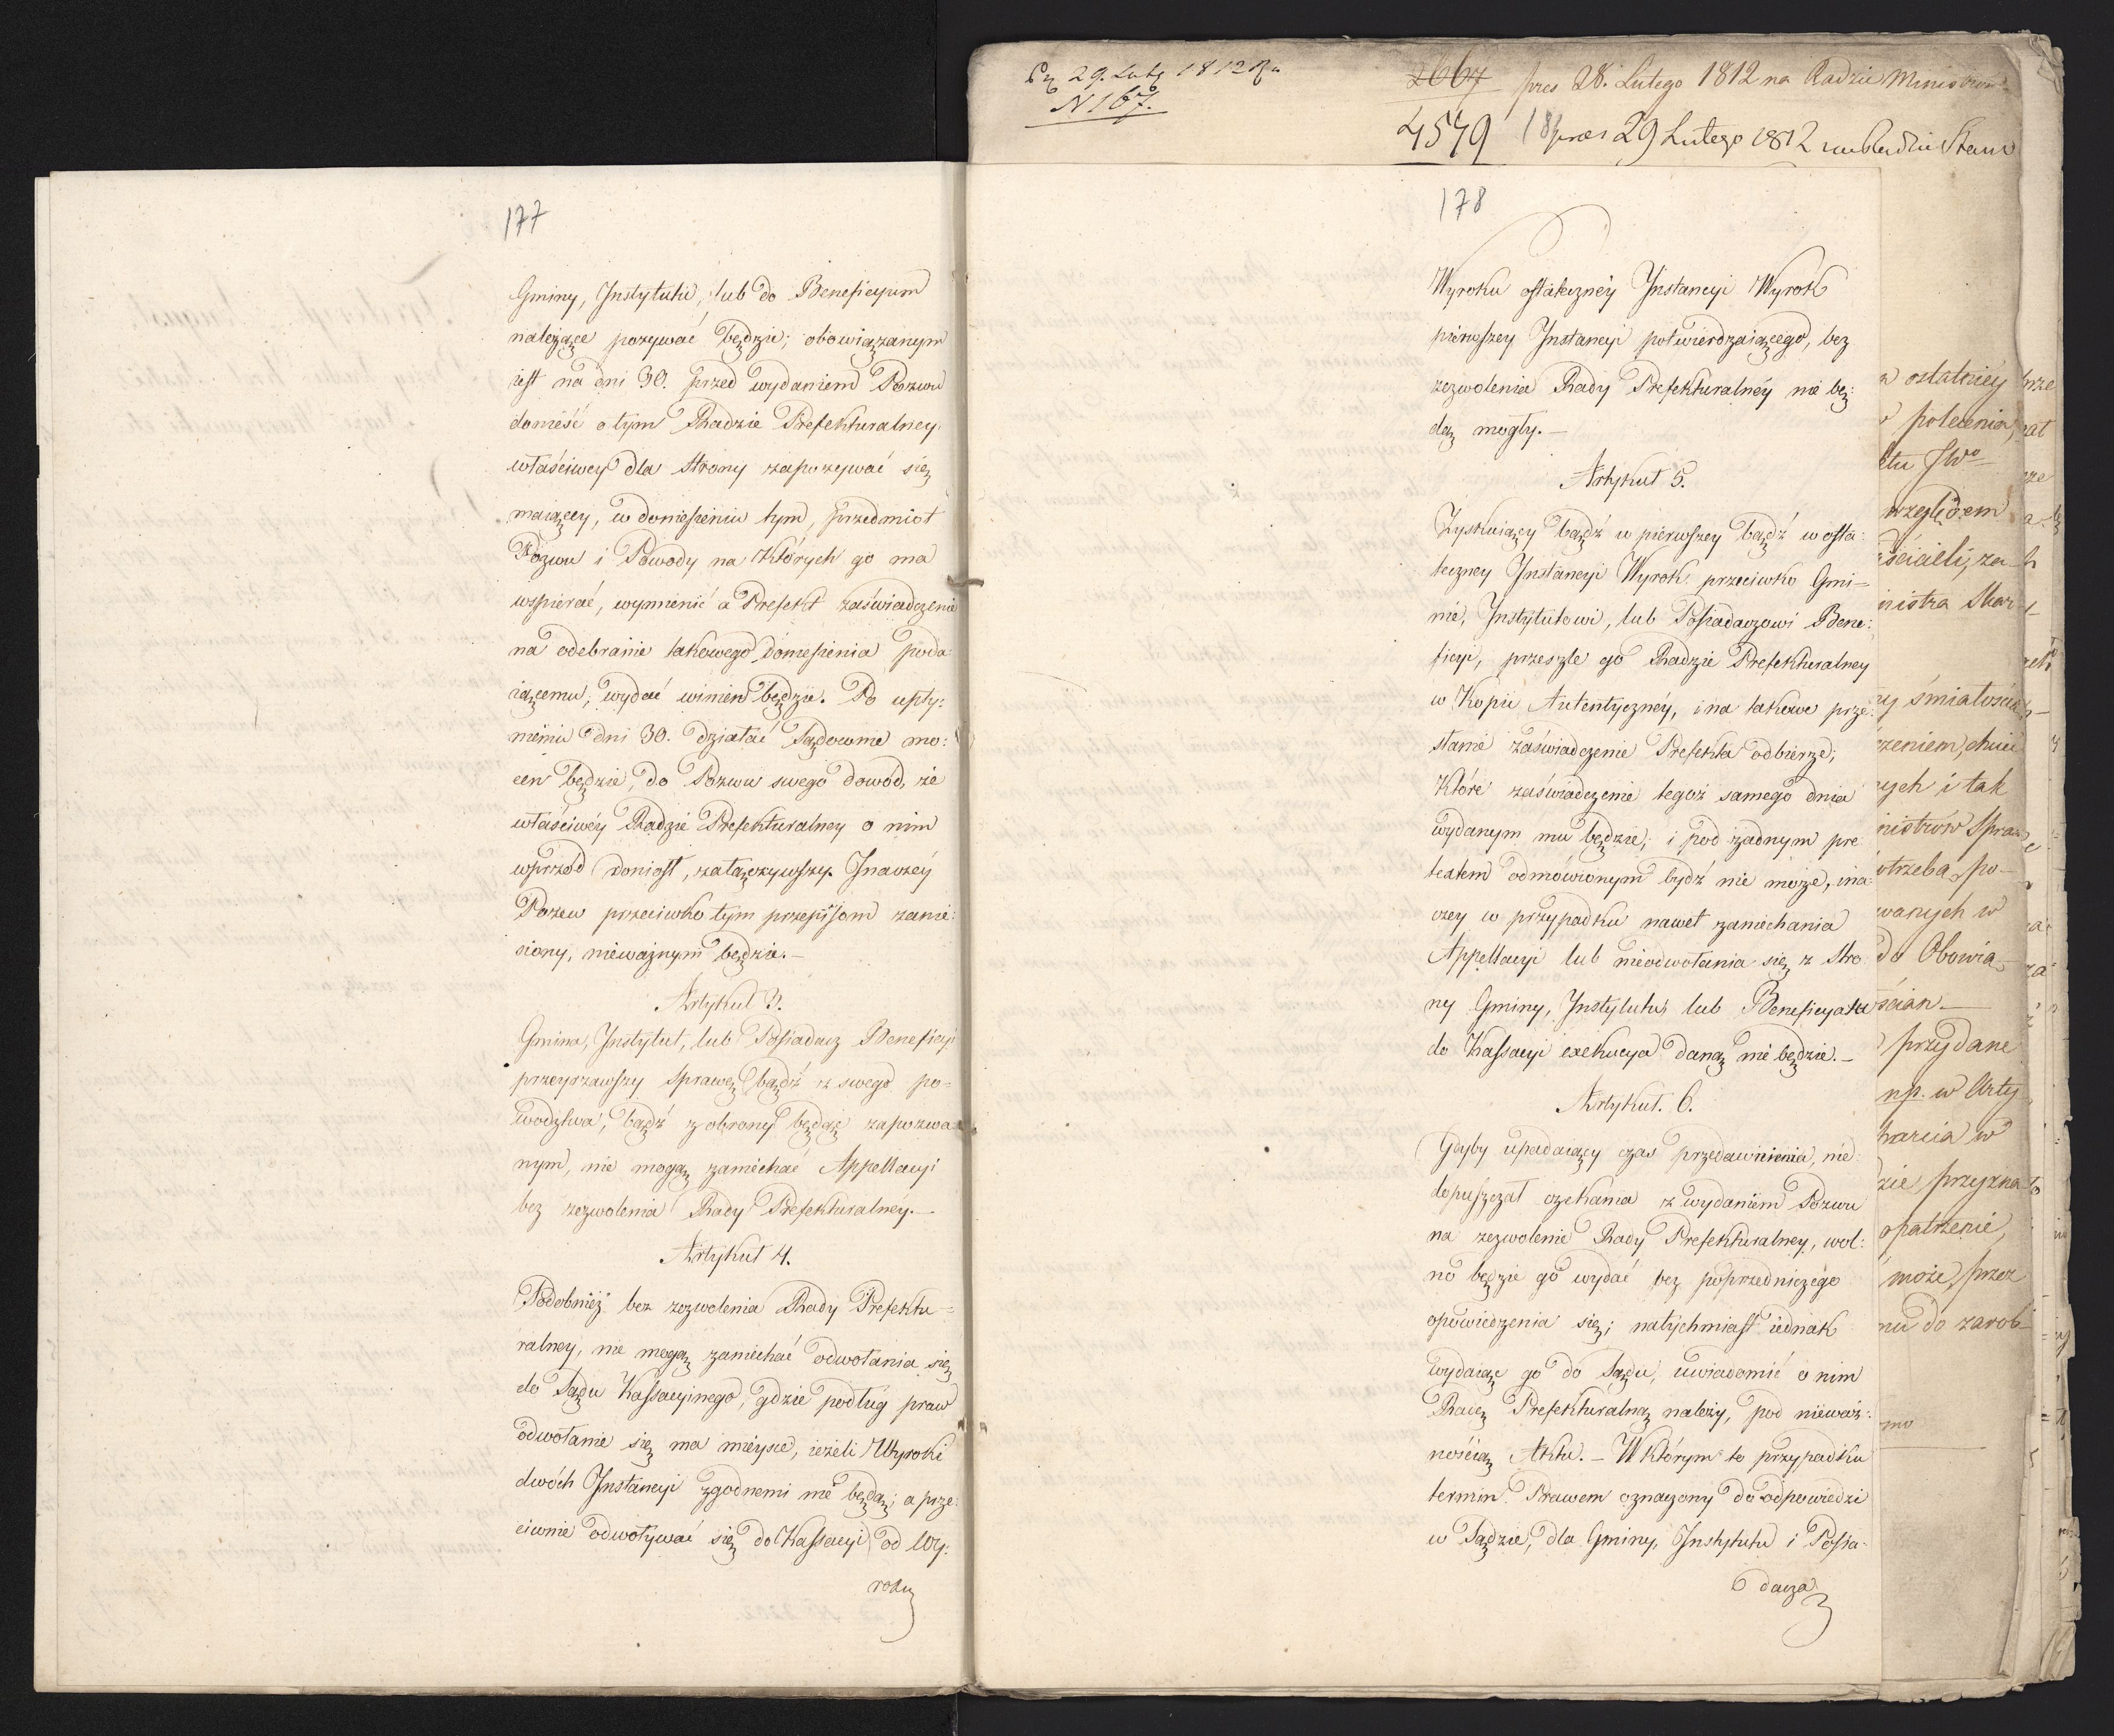 177
Gminy, Instytutu, lub do Beneficyum
należące pozywać będzie; obowiązanym
iest na dni 30. przed wydaniem Pozwu
donieść o tym Radzie Prefekturalney
właściwey dla strony zapozywać się
maiącey, w doniesieniu tym, przedmiot
Pozwu i Powody na których go ma
wspierać, wymienić a Prefekt zaświadczenie
na odebranie takowego doniesienia poda-
iącemu, wydać winien będzie. Po upły-
nieniu dni 30. działać Sądownie mo-
cen będzie, do Pozwu swego dowód, że
właściwéy Radzie Prefekturalney o nim
wprzód doniosł, załączywszy. Inaczéy
Pozew przeciwko tym przepisom zanie-
siony, nieważnym będzie.—
Artykuł 3.
Gmina, Instytut, lub Posiadacz Beneficyi
przegrawszy sprawę bądź z swego po-
wodztwa, bądź z obrony będąc zapozwa-
nym, nie mogą zaniechać Appellacyi
bez zezwolenia Rady Prefekturalnéy.—
Artykuł 4.
Podobnież bez zezwolenia Rady Prefektu-
ralney, nie mogą zaniechać odwołania się
do Sądu Kassacyinego, gdzie podług praw
odwołanie się ma mieysce, ieżeli Wyroki
dwóch Instancyi zgodnemi nie będą; a prze-
ciwnie odwoływać się do Kassacyi od Wy-
roku
29. Lut 1812
N 167.
2667 pres 28. Lutego 1812 na Radzie Ministrów
4579 pres 29 Lutego 1812 na Radzie Stanu
178
Wyroku ostateczney Instancyi Wyrok
pierwszey Instancyi potwierdzaiącego, bez
zezwolenia Rady Prefekturalnéy nie bę-
dą mogły.—
Artykuł 5.
Zyskuiący bądź w pierwszey bądź w osta-
teczney Instancyi Wyrok przeciwko Gmi-
nie, Instytutowi, lub Posiadaczowi Bene-
ficyi, przeszle go Radzie Prefekturalney
w Kopii Autentycznéy, i na takowe prze-
słanie zaświadczenie Prefekta odbierze;
Które zaświadczenie tegoż samego dnia
wydanym mu będzie, i pod żadnym pre-
textem odmówionym bydź nie może, ina-
czey w przypadku nawet zaniechania
Appellacyi lub nieodwołania się z stro-
ny Gminy, Instytutu lub Beneficyata
do Kassacyi exekucya daną nie będzie.—
Artykuł. 6.
Gdyby upadaiący czas przedawnienia, nie-
dopuszczał czekania z wydaniem Pozwu
na zezwolenie Rady Prefekturalney, wol-
no będzie go wydać bez poprzedniczego
opowiedzenia się; natychmiast iednak
wydaiąc go do Sądu, uwiadomić o nim
Radę Prefekturalną należy, pod nieważ-
nością Aktu.— W którym to przypadku
termin Prawem oznaczony do odpowiedzi
w Sądzie, dla Gminy, Instytutu i Posia-
dacza
ostatniey
polecenia,
względem
ścicieli, za-
nistra Skar-
śmiałości
ych i tak
nistrów Spraw
otrzeba, po-
wanych w
do Obowią-
ścian—
przydane
np. w Arty
harcia w
zie przyzna
opatrzenie,
może, przez
nu do zarob-